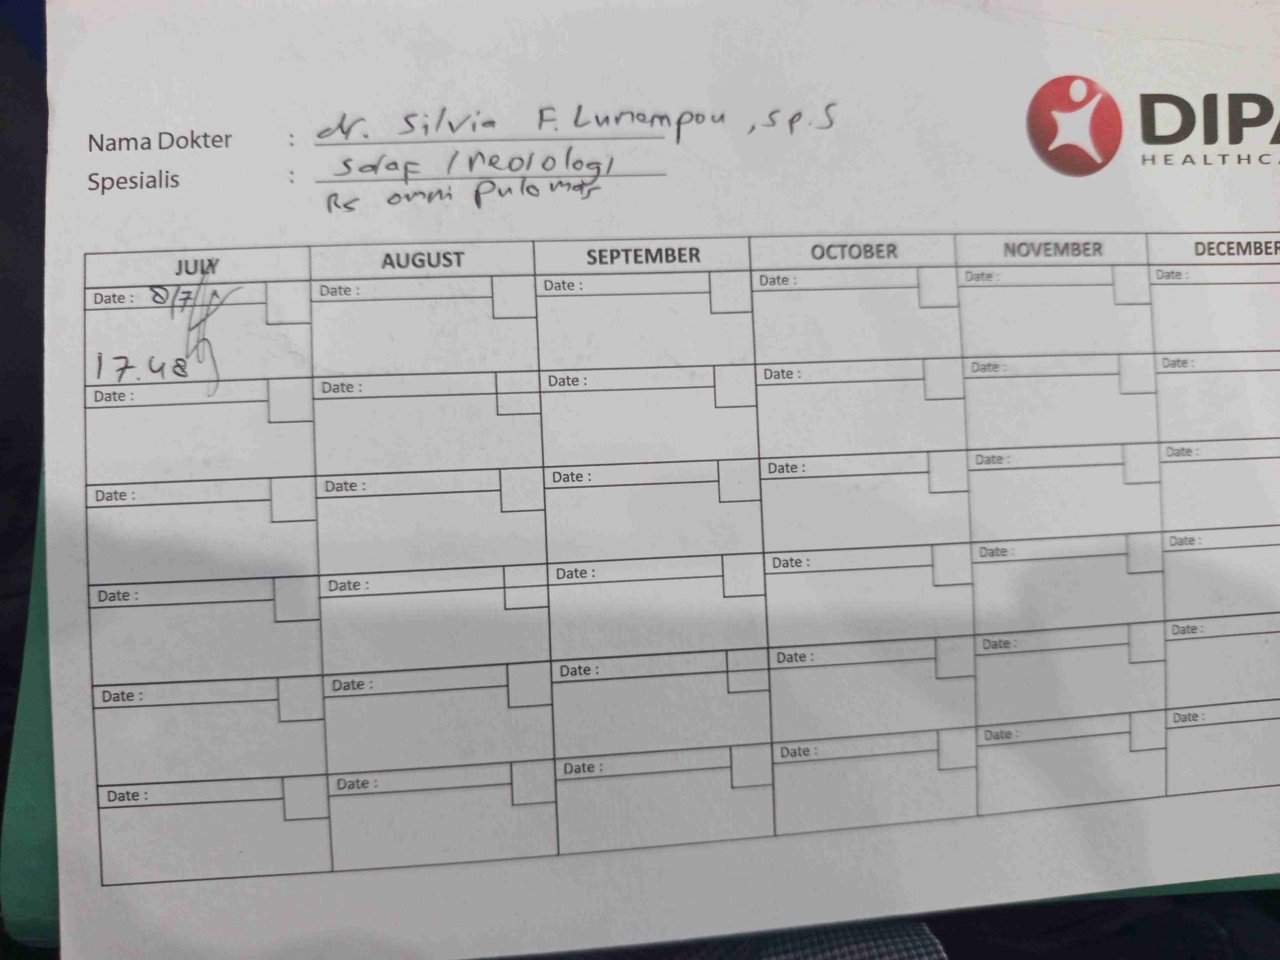 Nama Dokter : dr. Silvia F. Lumempou, sp.S
Spesialis : Saraf / neorologi
Rs omni Pulomas
DIPA
HEALTHCA
JULY AUGUST SEPTEMBER OCTOBER NOVEMBER DECEMBER
Date : 8/7/ Date : Date : Date : Date : Date :
17.48
Date : Date : Date : Date : Date : Date :
Date : Date : Date : Date : Date : Date :
Date : Date : Date : Date : Date : Date :
Date : Date : Date : Date : Date : Date :
Date : Date : Date : Date : Date : Date :